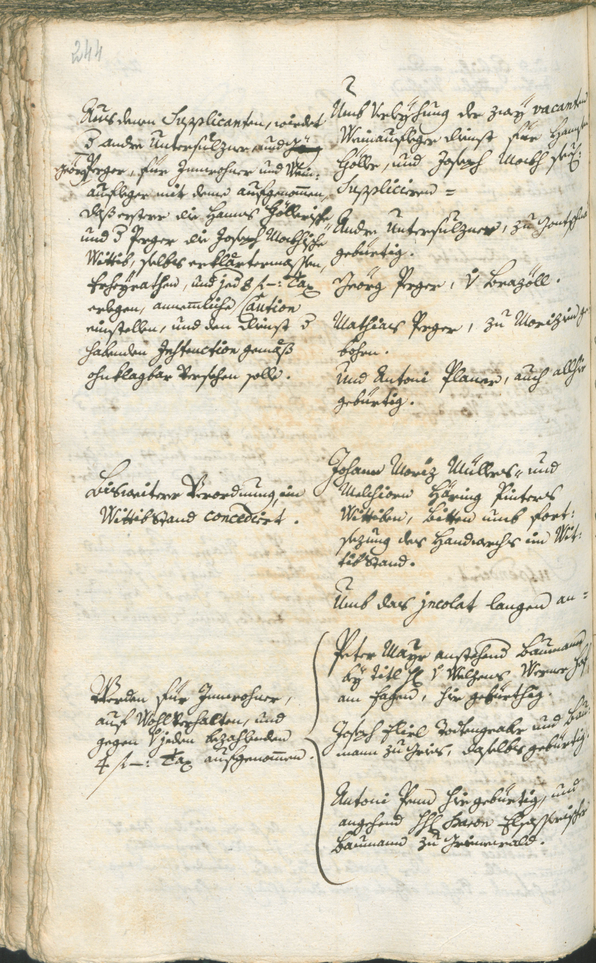 244
Aus denen Supplicanten, wirdet
d andre Untersulzner, und
Georg Prger, für Innwohner und Wein:
aufleger mit deme aufgenommen,
daß erster die Hannß Höllerische
und d Prger die Joseph Mochlische
Wittib, selbs erclärtermassen,
Eheyrathen, und jed 8 f –: Tax
erlegen, annemliche Caution
einstellen, und den Dienst d
habenden Instruction gemäß
ohnklagbar versehen solle.
Umb Verleyhung der zway vacanten
Weinaufleger dienst für Hannß
Höller, und Joseph Mochl
Suppliciren =
Andre Untersulzner, zu
gebürtig.
Georg Prger, v Brazöll.
Mathias Prger, zu Morizing
bohren.
Und Antoni Planer, auch allhir
gebürtig.
Bis weitere Verordnung, im
Wittibstand concediert.
Johann Moriz Müllers- und
Melchiorn Häring Pinters
Wittiben, bitten umb fort:
sezung des Handwerchs im Wit:
tibstand.
Umb das jncolat langen an =
Werden für Innwohner,
auf Wohlverhalten, und
gegen v jeden bezahlenden
4 f –: Tax aufgenommen.
Peter Mayr anstehend Baumann
by titl H v
am, hir gebürthig.
Joseph Todengraber und Bau
mann zu Gries, daselbs gebürtig.
Antoni Penn hir gebürtig, und
angehend Baron
Baumann zu Grienewald.